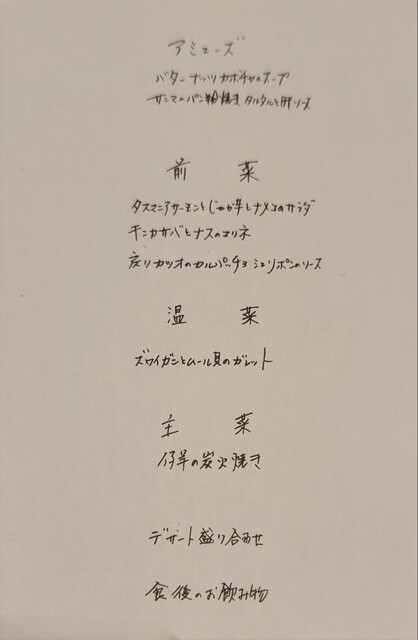 アミューズ
バターナッツカボチャのスープ
サンマのパン粉焼き タルタルと肝ソース
前菜
タスマニアサーモンとじゃが芋とナメコのサラダ
キンカサバとナスのマリネ
戻りカツオのカルパッチョ シェリポンのソース
温菜
ズワイガニとムール貝のガレット
主菜
仔羊の炭火焼き
デザート盛り合わせ
食後のお飲み物